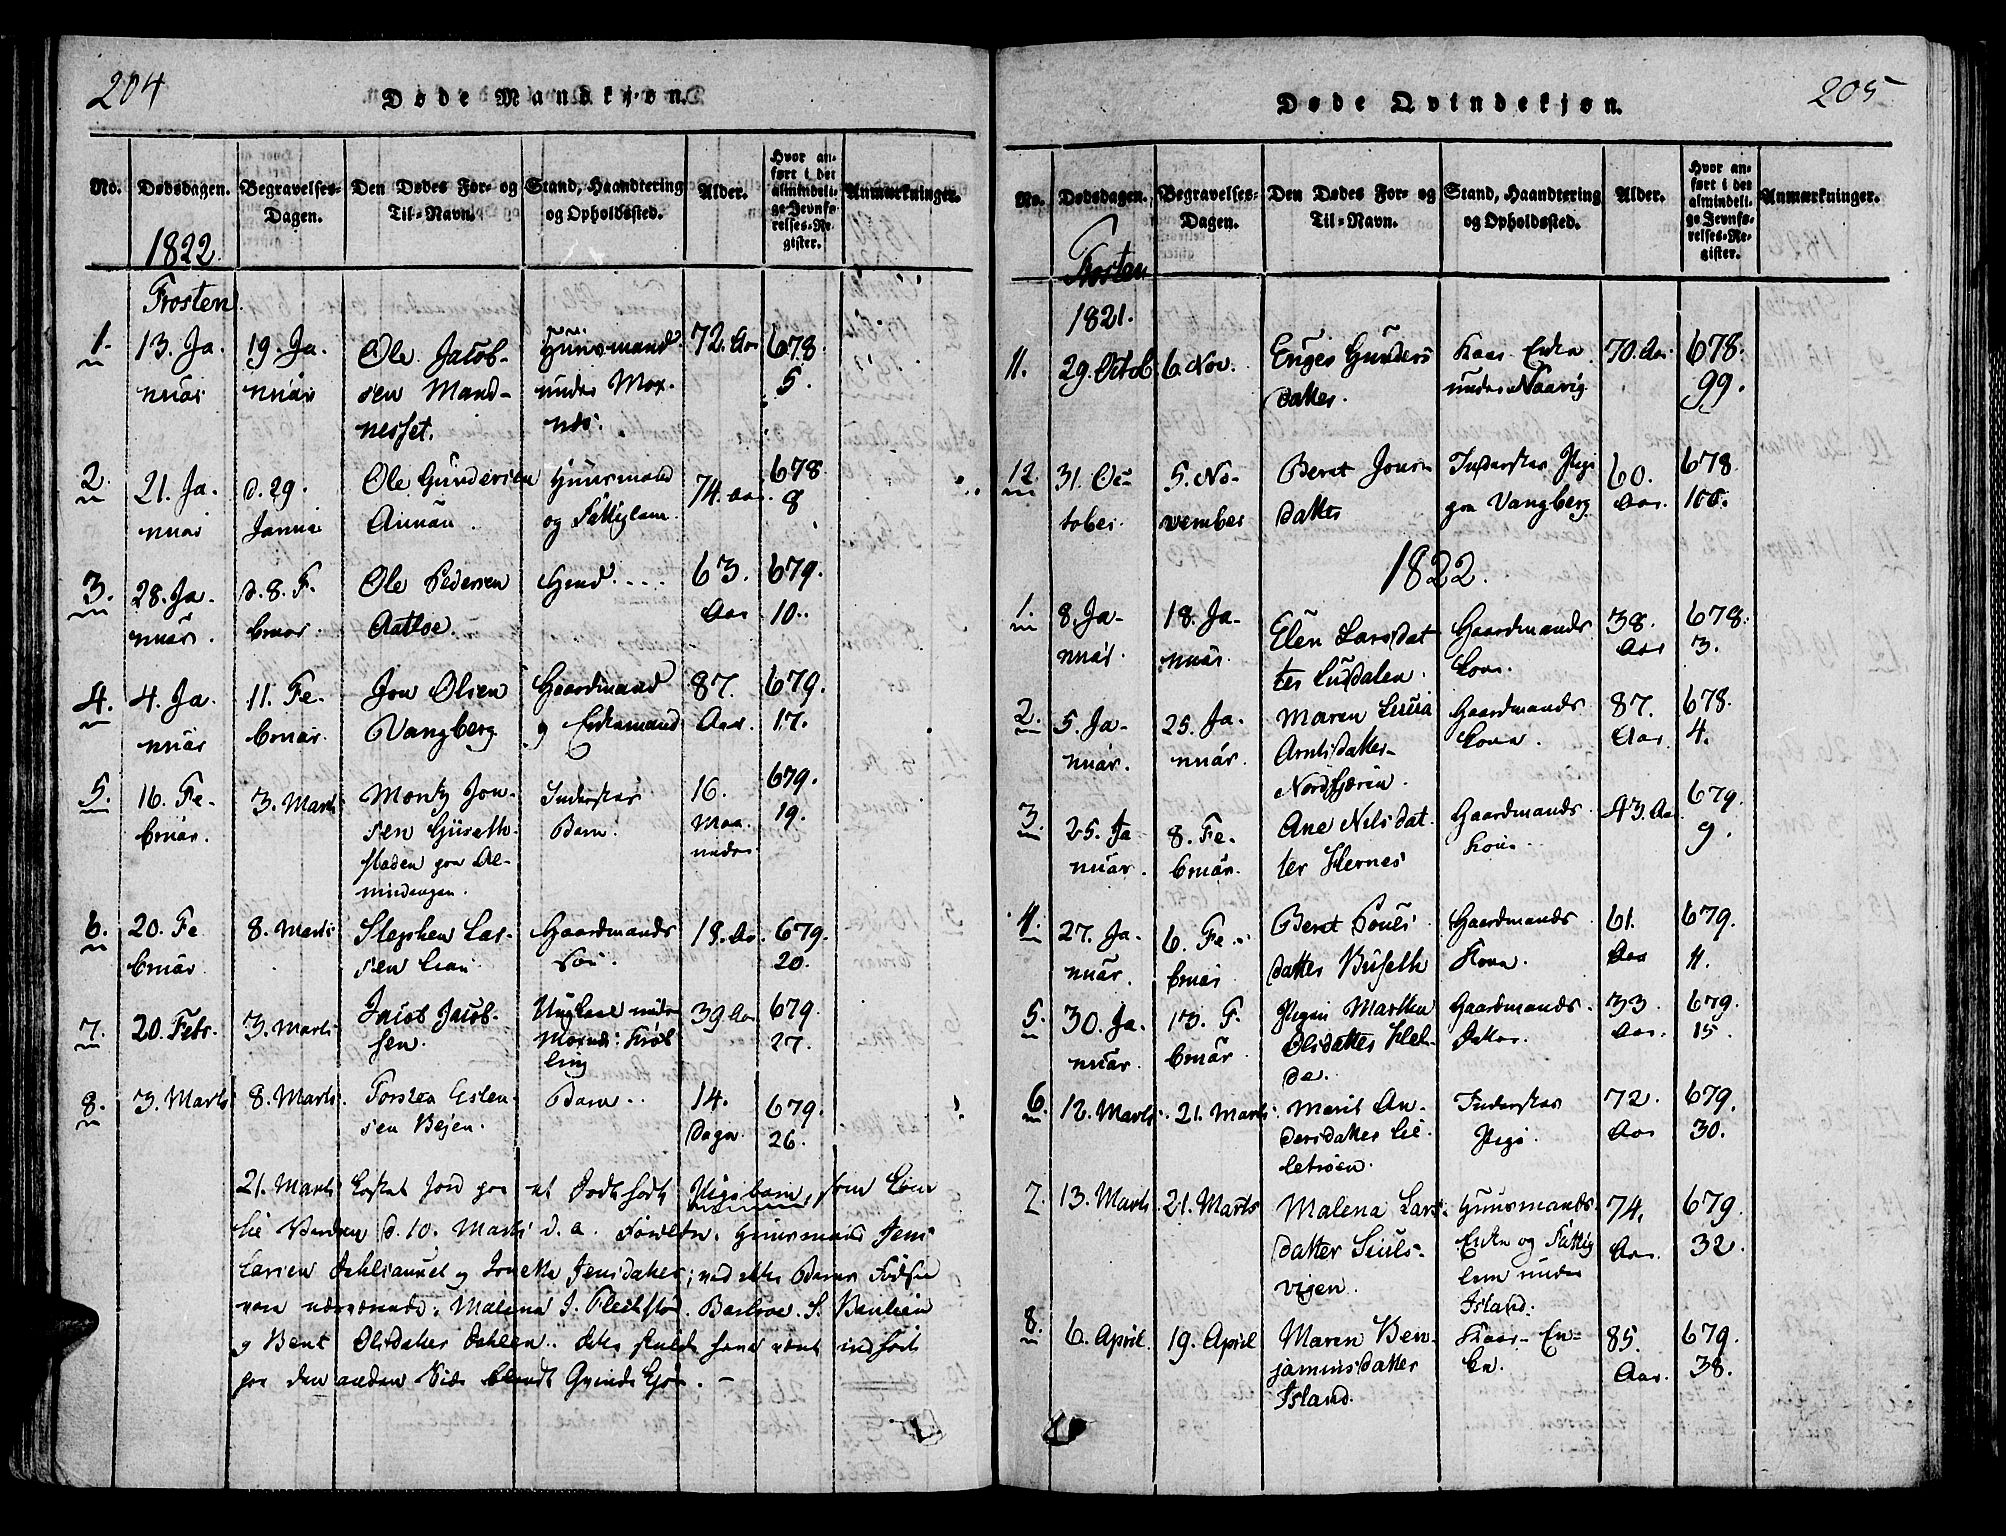 204
Døde Mandkjøn.
No.
Dødsdagen.
Begravelses-
Dagen.
Den Dødes For- og
Til-Navn.
Stand, Haandtering
og Opholdssted.
Alder.
Hvor an-
ført i det
almindeli-
ge Jevnfø-
relses-Re-
gister.
Anmærkninger.
1822.
Frosten.
1.
13. Ja-
nuar
19. Ja-
nuar
Ole Jacob-
sen Mand-
nesset.
Huusmand
under Mox-
næs.
72. Aar
678.
5.
2.
21. Ja-
nuar
d. 29.
Januar
Ole Gundersen
Aunan
Huusmand
og Fattiglem
74. Aar.
678
8
3.
28. Ja-
nuar.
d. 8. F-
bruar.
Ole Pedersen
Aatloe.
63.
Aar
679.
10.
4.
4. Ja-
nuar
11. Fe-
bruar.
Jon Olsen
Vangberg
Gaardmand
og Enkemand
87.
Aar
679.
17.
5.
16. Fe-
bruar.
3. Marts
Mentz Jon-
sen
paa Al-
mindingen.
Inderstes
Barn.
16.
Maa-
neder
679.
19.
6.
20. Fe
bruar
8. Marts
Stephen Lar-
sen
Gaardmands
Søn.
18. Aar.
679.
20.
7.
20. Febr.
3. Marts
Jacob Jacob-
sen.
Ungkarl under
39 Aar
679.
27.
8.
3. Marts
8. Marts.
Torsten Esten-
sen Vejen.
Barn.
14.
Dage.
679.
26.
21. Marts kastet Jord paa et dødfødt Pigebarn, som kom
til Verden d. 10. Marts d. a. Forældre. Huusmand Jens
Larsen og Jonetta Jensdatter; ved dette Barns Fødsel
vare nærværende: Malena J.
og Beret Olsdatter Dahlen. Dette skulde have været indført
paa den anden Side blandt Qvindekjøn. —
205
Døde Qvindekjøn.
No.
Dødsdagen.
Begravelses-
Dagen.
Den Dødes For- og
Til-Navn.
Stand, Haandtering
og Opholdssted.
Alder.
Hvor an-
ført i det
almindeli-
ge Jevnfø-
relses-Re-
gister.
Anmærkninger.
Frosten
1821.
11.
29. Octob.
6. Nov.
Gunders
datter.
Enke
under Naavig
70. Aar
678.
99.
12.
31. Oc-
tober.
5. No-
vember
Beret Jons-
datter
Inderstes Pige
paa Vangberg
60.
Aar.
678.
100.
1822.
1.
8. Ja-
nuar.
18. Ja-
nuar.
Elen Larsdat
ter
Gaardmands
Kone.
38.
Aar
678.
3.
2.
5. Ja-
nuar.
25. Ja-
nuar.
Maren Lucia
Arntsdatter
Nordfjæren.
Gaardmands
Kone.
87.
Aar.
678.
4.
3.
25. Ja
nuar.
8. Fe-
bruar.
Ane Nilsdat-
ter Hernes
Gaardmands
Kone.
43. Aar
679.
9.
4.
27. Ja-
nuar.
6. Fe-
bruar
Beret Pouls
datter
Gaardmands
Kone.
61.
Aar
679.
11.
5.
30. Ja-
nuar.
13. F-
bruar
Pigen Martha
Olsdatter
Gaardmands
Datter.
33
Aar.
679.
15
6.
12. Marts.
21. Marts.
Marit An-
dersdatter
Inderstes
Pige
72.
Aar
679.
30.
7.
13. Marts
21. Marts
Malena Lars-
datter
vigen.
Huusmands
Enke og Fattig
lem under
Island.
74.
Aar.
679.
32.
8.
6. April
19. April
Maren Ben-
jaminsdatter
Island.
En-
ke.
85.
Aar.
679.
38.